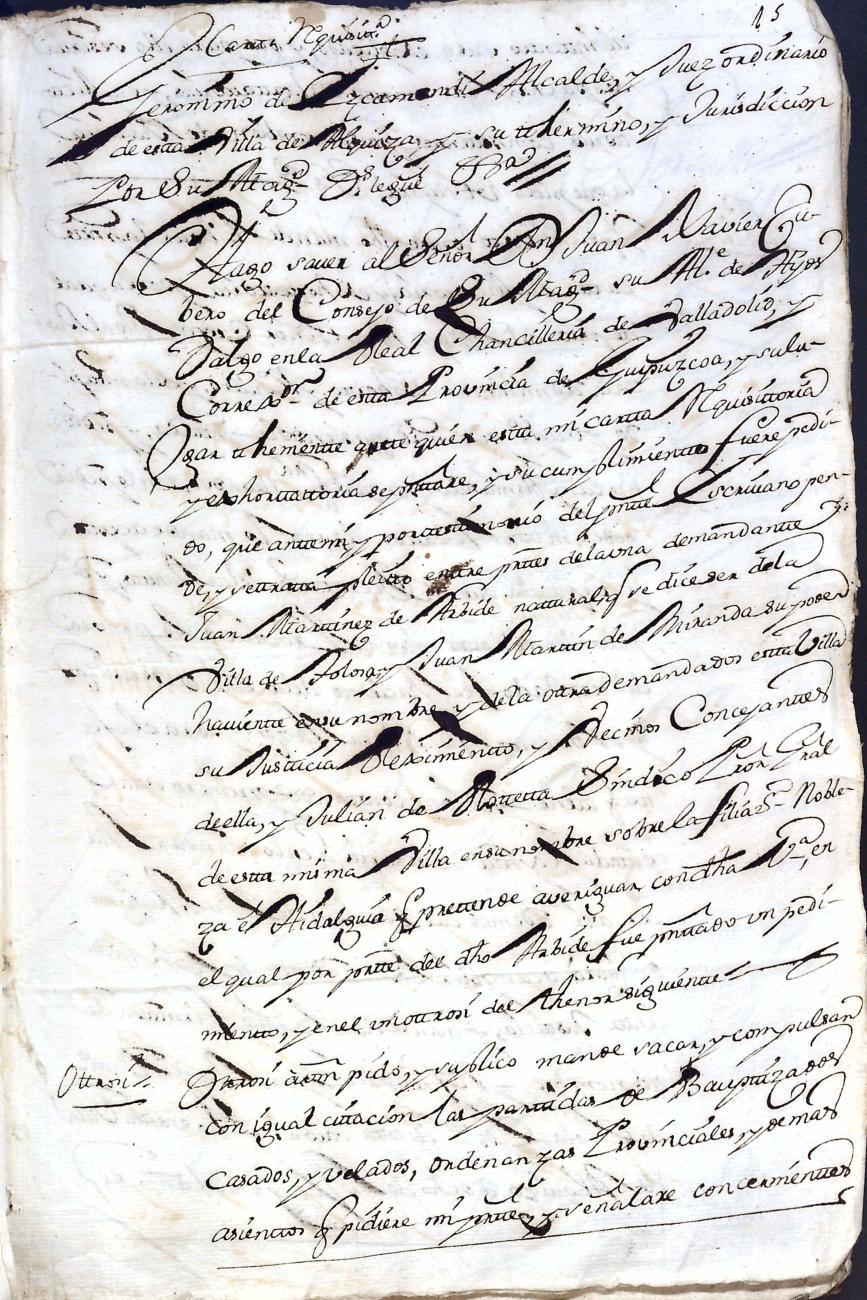 15
Carta Rquisitª
Jeronimo de Ezcamendi Alcalde, y Juez ordinario
de esta Villa de Alquiza y su thermino, y Jurisdiccion
Por Su Magd Ds legue
Hago saver al Señor Dn Juan Xavier Cu-
bero del Consejo de Su Magd su Alce de Hijos
Dalgo en la Real Chancilleria de Valladolid, y
Correxor de esta Provincia de Guipuzcoa, y su lu-
gar theniente ante quien esta mi carta Rquisittoria
y exsortattoria se pnttare, y su cumplimientto fuere pedi-
do, que antte mi y por testimonio del pnte Escrivano pen-
de, y se tratta pleitto entre prtes de la una demandante
Juan Martinez de Arbide nattural q se dice ser de la
Villa de Tolosa, y Juan Martin de Miranda su poder
haviente en su nombre, y de la otra demandados esta Villa
su Justicia Reximientto, y Vecinos Concejanttes
de ella, y Julian de Rotteta Sindico Pror Gral
de esta misma Villa en su nombre sobre la filiazn Noble-
za e Hidalguia q prettende averiguar con dha Vª, en
el qual por prtte del dho Arbide fue pnttado un pedi-
miento, y en el un ottrosi del thenor siguiente
Ottrosi
Otrosi a Vm pido, y suplico mande sacar, y compulsar
con igual citacion las partidas de Bauptizados
Casados, y velados, ordenanzas Provinciales, y demas
asientos q pidiere mi prtte, y señalare concernientes